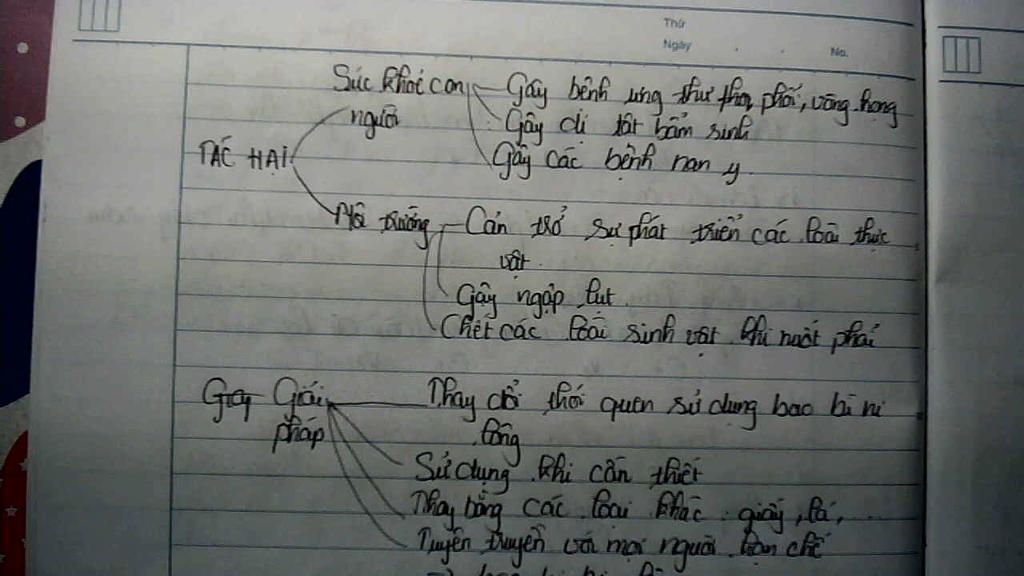 Thứ
Ngày . . No.
Sức khoẻ con Gây bệnh ung thư phổi, vòng họng
người Gây dị tật bẩm sinh
TÁC HẠI Gây các bệnh nan y.
Môi trường Cản trở sự phát triển các loài thực
vật.
Gây ngập lụt.
Chết các loài sinh vật khi nuốt phải
Giải Thay đổi thói quen sử dụng bao bì ni
pháp lông
Sử dụng khi cần thiết
Thay bằng các loại khác giấy, lá,
Tuyên truyền với mọi người hạn chế